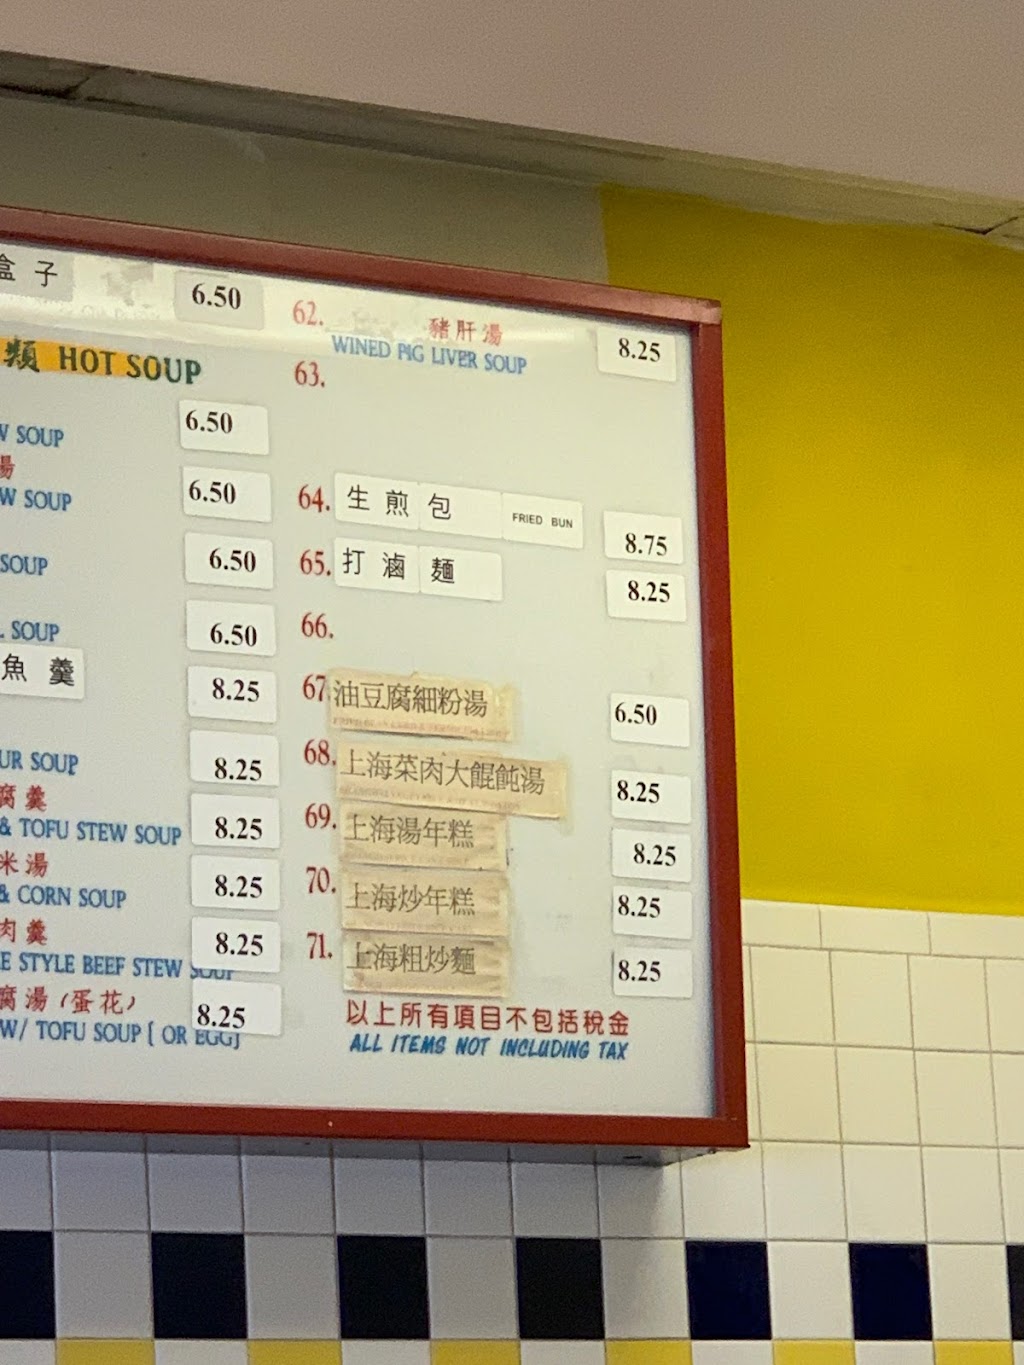 盒子 6.50
類 HOT SOUP
W SOUP 6.50
湯
W SOUP 6.50
SOUP 6.50
L SOUP 6.50
魚羹 8.25
UR SOUP 8.25
腐羹
& TOFU STEW SOUP 8.25
米湯
& CORN SOUP 8.25
肉羹
E STYLE BEEF STEW SOUP 8.25
腐湯(蛋花)
W/ TOFU SOUP [ OR EGG] 8.25
62. 豬肝湯
WINED PIG LIVER SOUP 8.25
63.
64. 生煎包 FRIED BUN 8.75
65. 打滷麵 8.25
66.
67 油豆腐細粉湯 6.50
68. 上海菜肉大餛飩湯 8.25
69. 上海湯年糕 8.25
70. 上海炒年糕 8.25
71. 上海粗炒麵 8.25
以上所有項目不包括稅金
ALL ITEMS NOT INCLUDING TAX